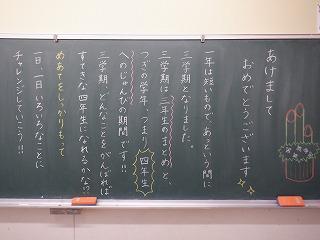 あけまして
おめでとうございます
一年は短いもので、あっという間に
三学期となりました。
三学期は三年生のまとめと、
つぎの学年、つまり四年生
へのじゅんびの期間です!!
三学期、どんなことをがんばれば
すてきな四年生になれるかな!?
めあてをしっかりもって
一日、一日いろいろなことに
チャレンジしていこう!!!